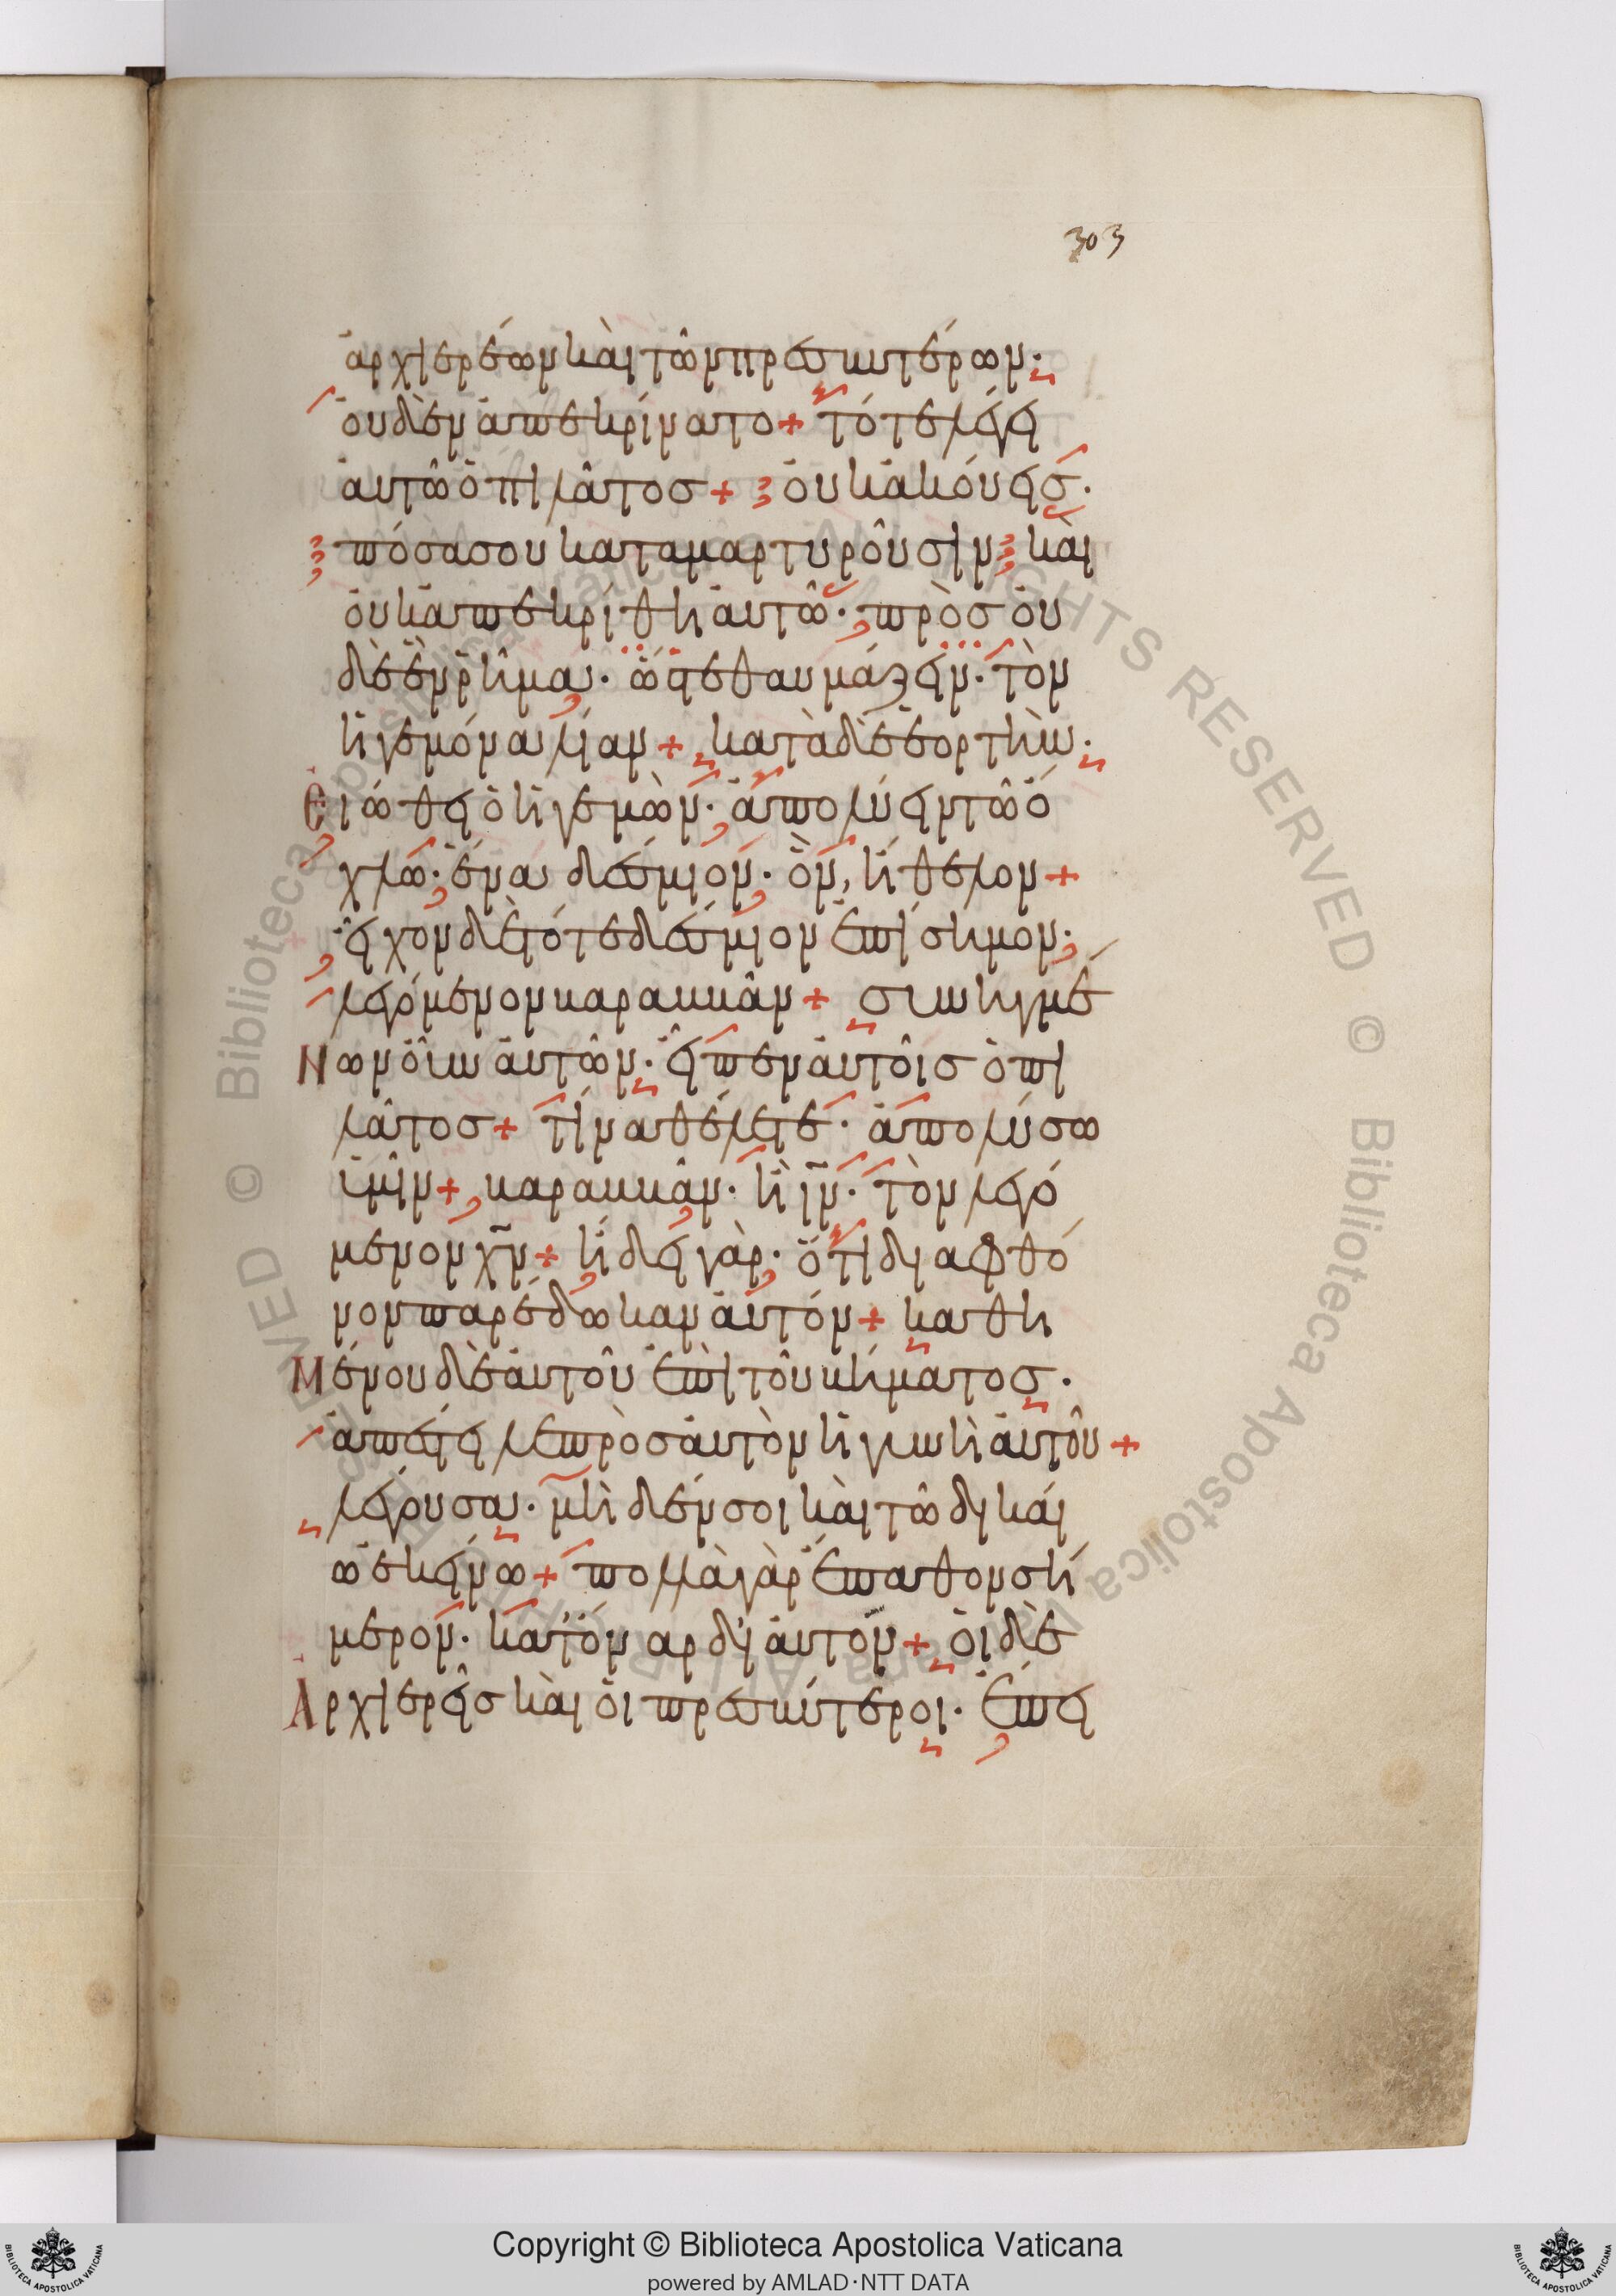 303
ἀρχιερέων καὶ τῶν πρεσβυτέρων·
οὐδὲν ἀπεκρίνατο + τότε λέγει
αὐτῶ ὁ πιλᾶτοσ + οὐκ ἀκούεισ·
πόσα σου καταμαρτυροῦσιν καὶ
οὐκ ἀπεκρίθη αὐτῶ· πρὸσ οὐ
δὲ ἓν ῥῆμα· ὥστε θαυμάζειν· τὸν
ἡγεμόνα λίαν + κατὰ δὲ ἑορτὴν·
Εἰώθει ὁ ἡγεμὼν· ἀπολύειν τῶ ὄ
χλω· ἕνα δέσμιον· ὃν, ἤθελον +
εἶχον δὲ τότε δέσμιον ἐπίσημον·
λεγόμενον βαραββᾶν + συνηγμέ
Νων οὖν αὐτῶν· εἶπεν αὐτοῖσ ὁ πι
λᾶτοσ + τίνα θέλετε· ἀπολύσω
ὑμῖν + βαραββᾶν· ἢ ἰν· τὸν λεγό
μενον χν + ἤδει γὰρ· ὅτι διὰ φθό
νον παρέδωκαν αὐτόν + καθη
Μένου δὲ αὐτοῦ ἐπὶ τοῦ βήματοσ·
ἀπέστειλε πρὸσ αὐτὸν ἡ γυνὴ αὐτοῦ +
λέγουσα· μὴ δέν σοι καὶ τῶ δικαί
ω ἐκείνω + πολλὰ γὰρ ἔπαθον σή
μερον· κατ' ὄναρ δι' αὐτόν + οἱ δὲ
Ἀρχιερεῖσ καὶ οἱ πρεσβύτεροι· ἔπει
© Biblioteca Apostolica Vaticana ALL RIGHTS RESERVED
Copyright © Biblioteca Apostolica Vaticana
powered by AMLAD·NTT DATA
BIBLIOTECA APOSTOLICA VATICANA
BIBLIOTECA APOSTOLICA VATICANA